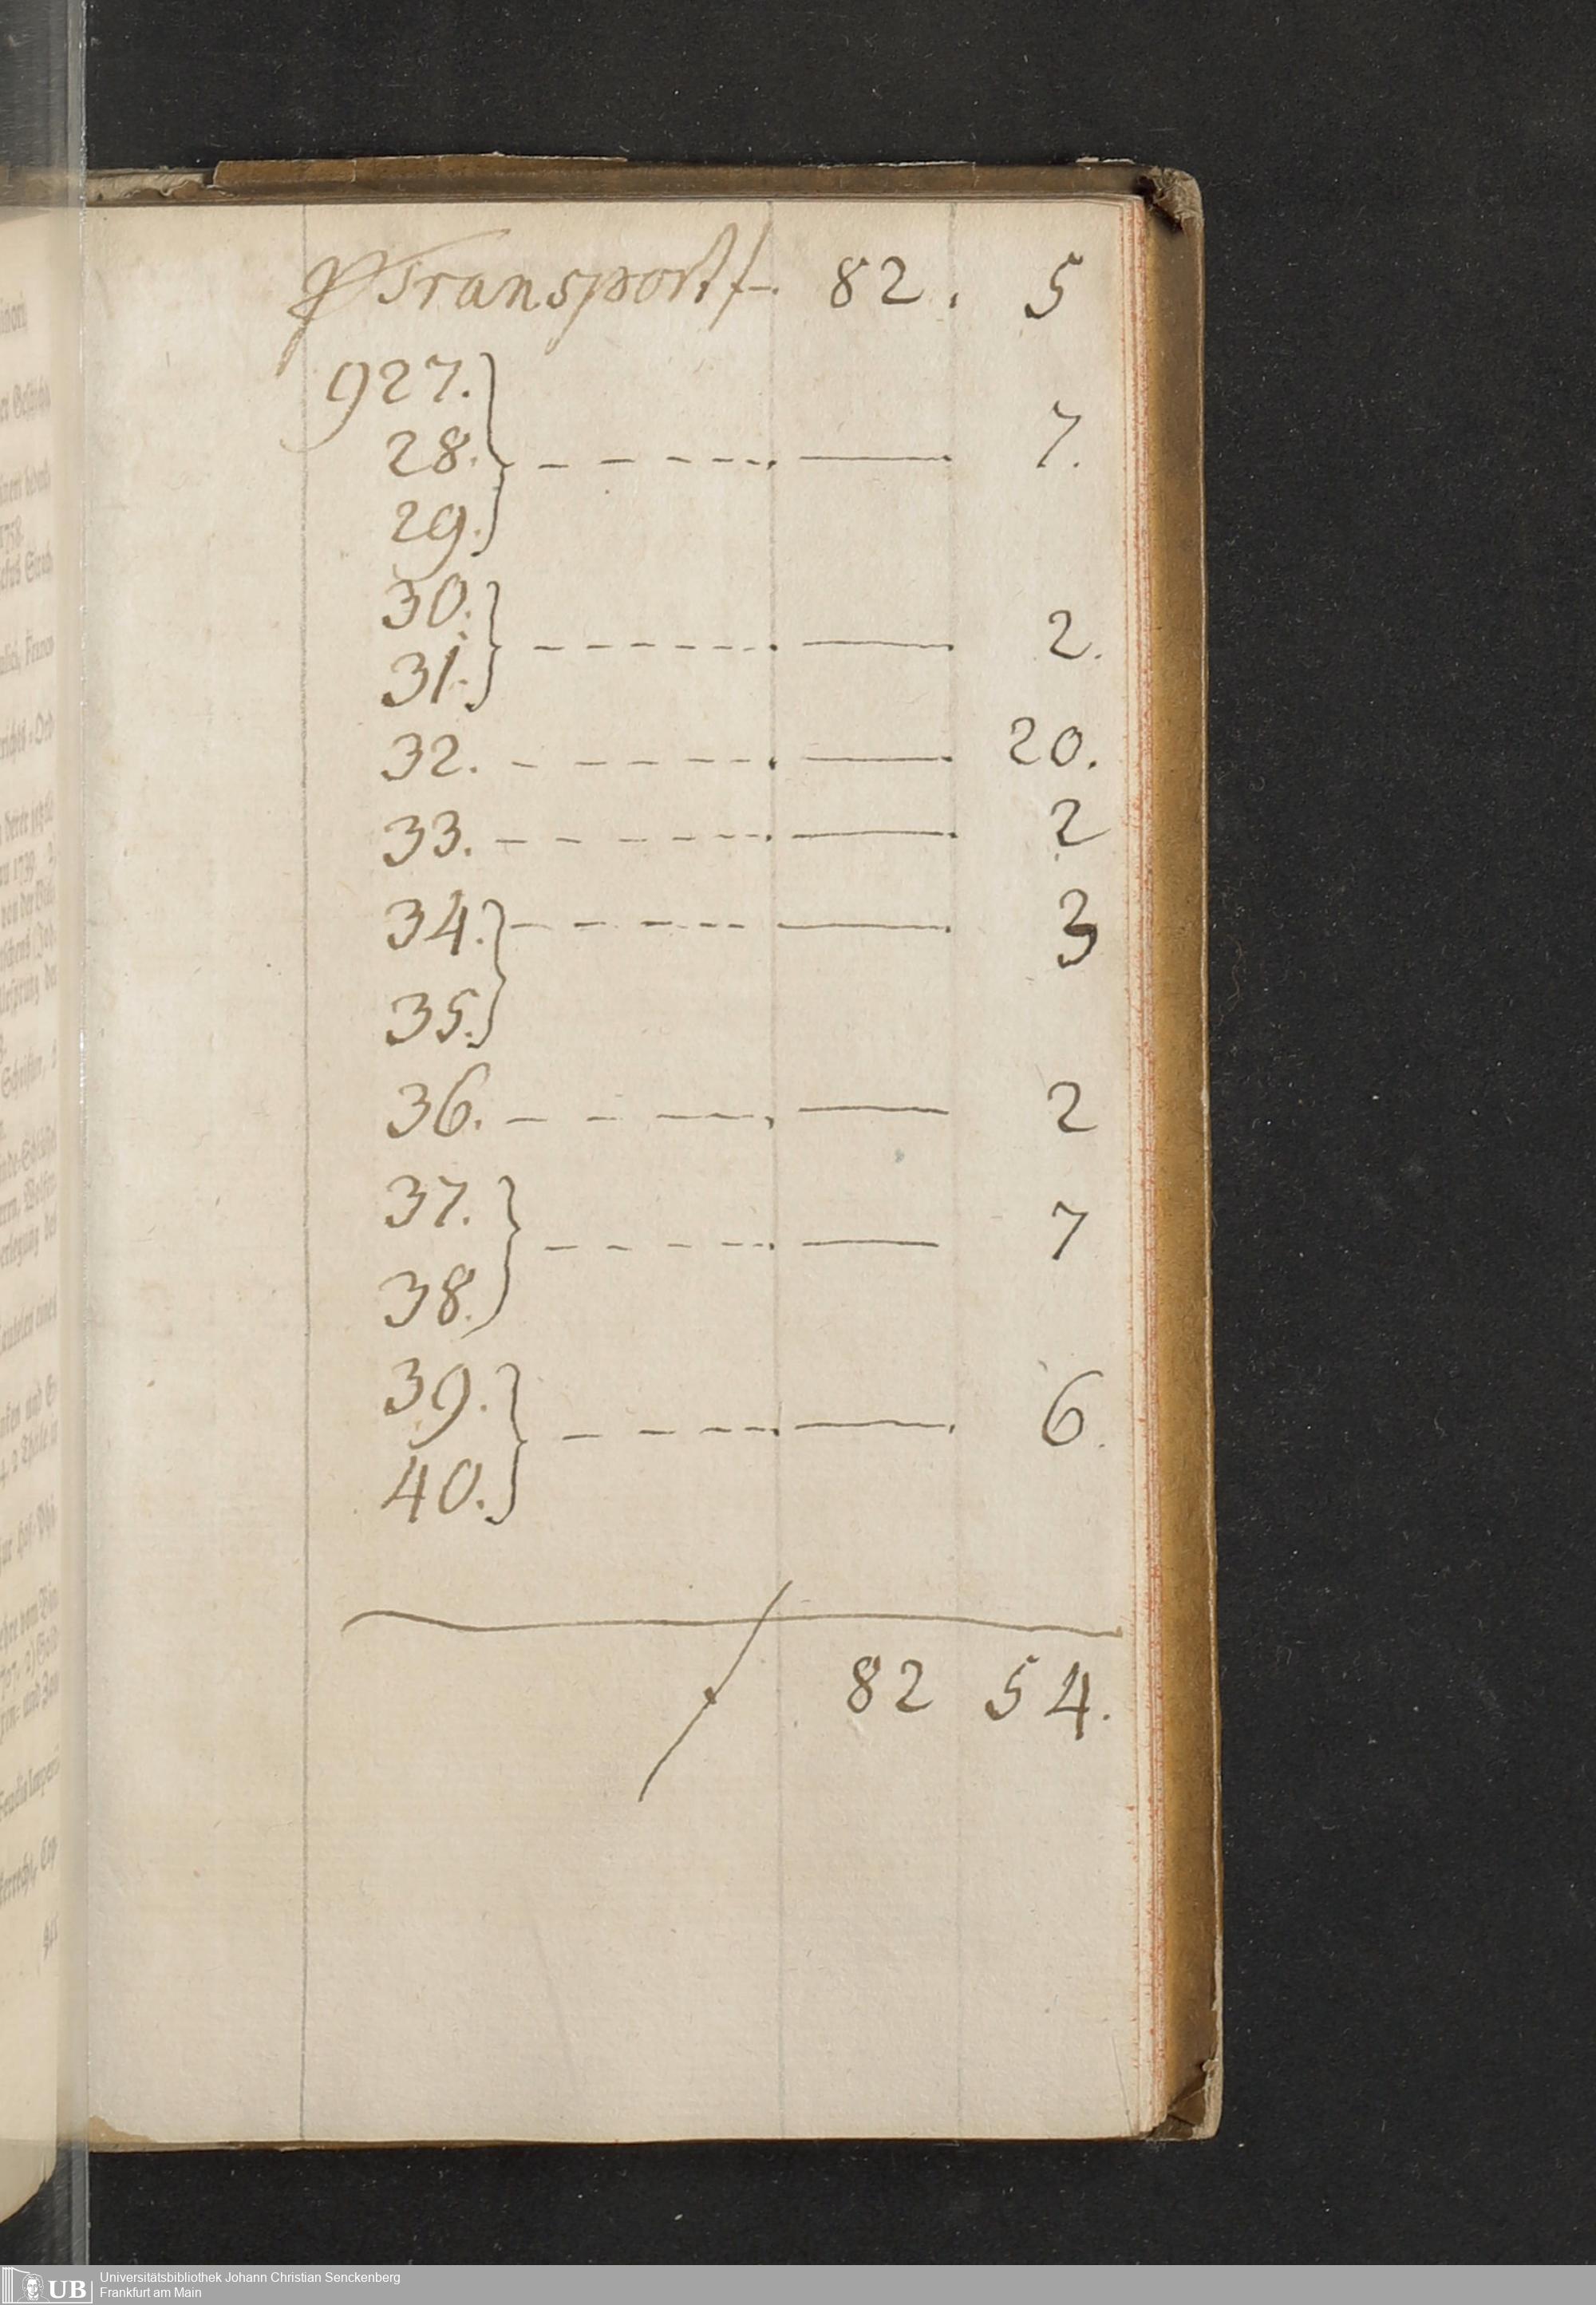 Transport f. 82. 5
927.
28. 7.
29.
30.
31. 2.
32. 20.
33. 2
34. 3
35.
36. 2
37.
38. 7
39.
40. 6.
82 54.
UB
Universitätsbibliothek Johann Christian Senckenberg
Frankfurt am Main